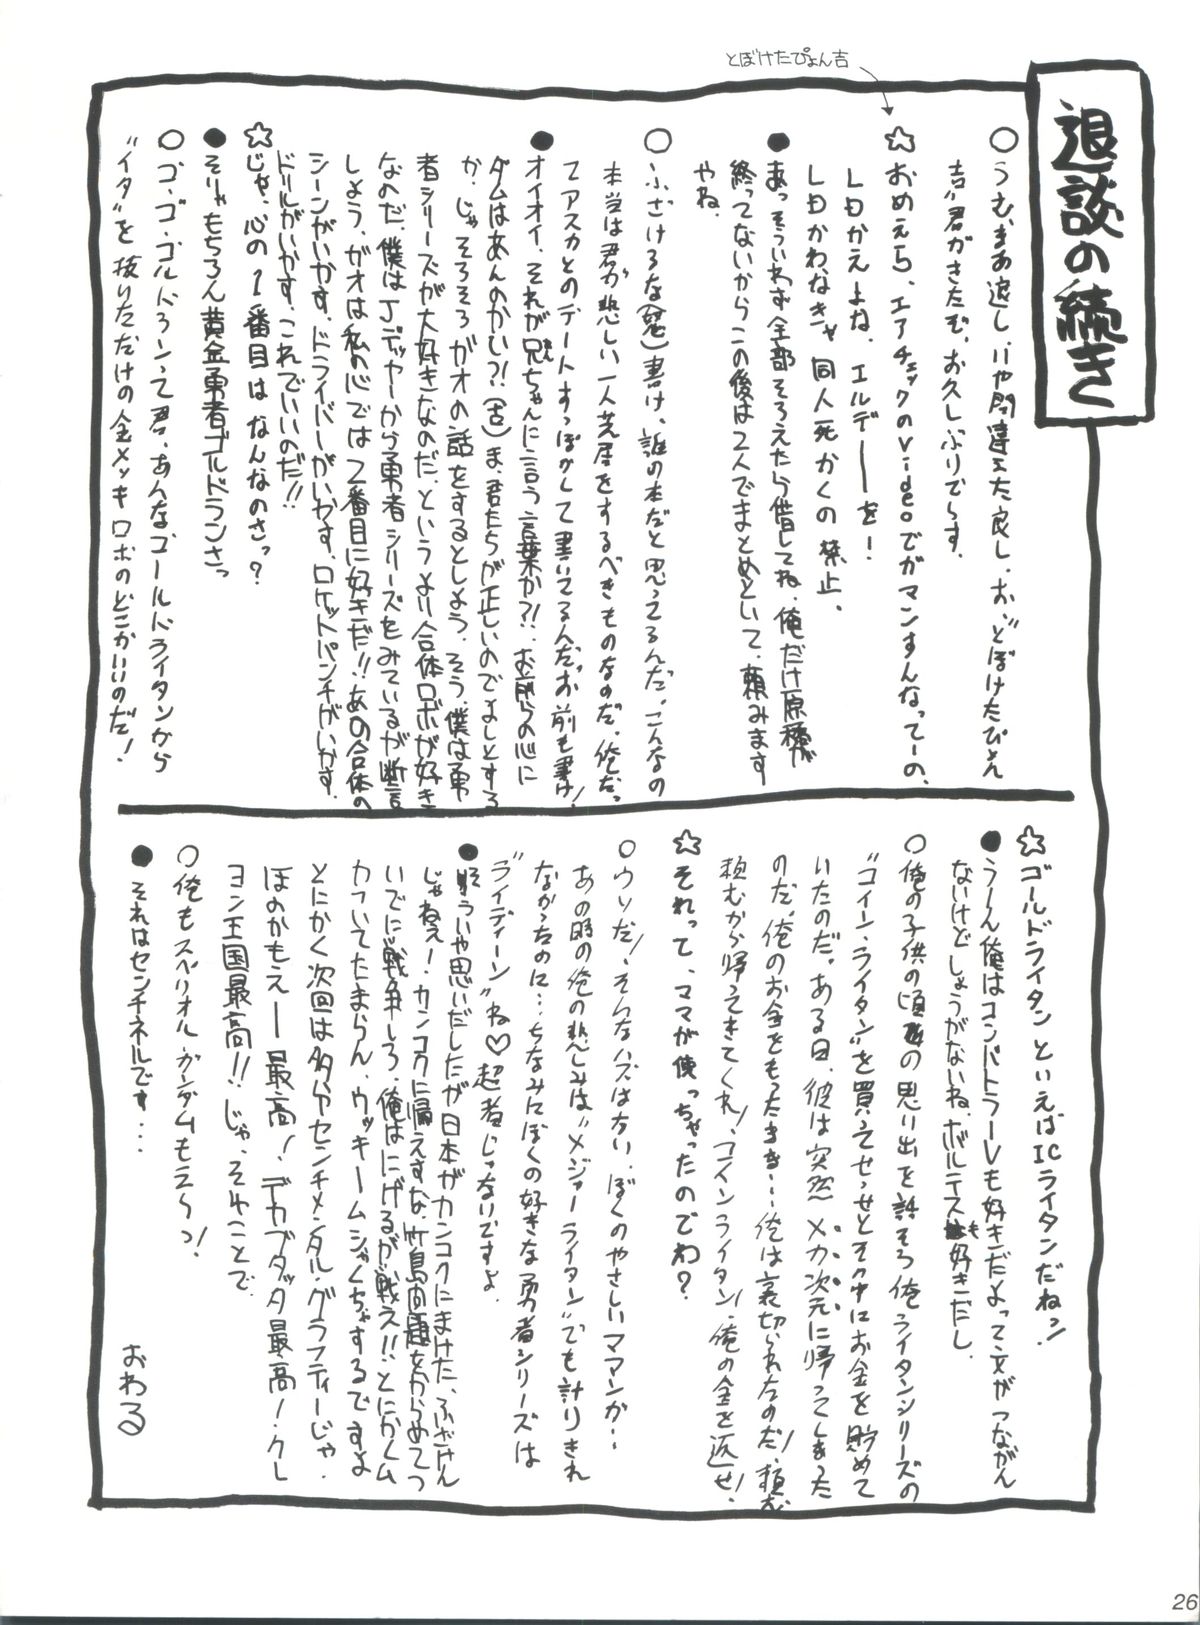 退談の続き
とぼけたぴょん吉
○うむまあ退し、いや間違えた良し、お、"とぼけたぴょん
吉"君がきたぞ。お久しぶりでーす。
☆おめえら、エアチェックのVideoでガマンすんなってーの、
LDかえよね、エルデーーを!
LDかわなきゃ同人死かくの禁止、
●あっそういわず全部そろえたら借してね、俺だけ原稿が
終ってないからこの後は2人でまとめといて、頼みます
やね。
○ふざけろな(怒)書け、誰の本だと思ってるんだ。こんなの
本当は君が悲しい一人芝居をするべきものなのだ。俺だっ
てアスカとのデートすっぽかして書いてるんだ。お前も書け!
●オイオイ、それが兄ちゃんに言う言葉か?!、お前らの心に
ダムはあんのかい?!(古)ま、君たちが正しいのでよしとする
か、じゃそろそろガオの話をするとしよう。そう、僕は勇
者シリーズが大好きなのだ。というより合体ロボが好き
なのだ、僕はJデッカーから勇者シリーズをみているが断言
しよう、ガオは私の心では2番目に好きだ!!あの合体の
シーンがいかす、ドライバーがいかす、ロケットパンチがいかす、
ドリルがいかす、これでいいのだ!!
☆じゃ、心の1番目はなんなのさっ?
●そりゃもちろん黄金勇者ゴルドランさっ
○ゴ・ゴ・ゴルドランって君、あんなゴールドライタンから
"イタ"を抜いただけの金メッキロボのどこがいいのだ!
☆ゴールドライタンといえばICライタンだねッ!
●うーん俺はコンバトラーVも好きだよって文がつながん
ないけどしょうがないね、ボルテスも好きだし、
○俺の子供の頃の思い出を話そう俺、ライタンシリーズの
"コイン・ライタン"を買ってせっせとその中にお金を貯めて
いたのだ。ある日、彼は突然メカ次元に帰ってしまった
のだ。俺のお金をもったまま…俺は裏切られたのだ!頼む
頼むから帰ってきてくれ!コインライタン!俺の金を返せ!
☆それって、ママが使っちゃったのでわ?
○ウソだ!そんなハズはない、ぼくのやさしいママンが…
あの時の俺の悲しみは"メジャーライタン"でも計りきれ
なかったのに…ちなみにぼくの好きな勇者シリーズは
"ライディーン"ね♡超者じゃないですよ
●そういや思いだしたが日本がカンコクにまけた、ふざけん
じゃねえ!カンコクに帰えすな、竹島問題をからめてつ
いでに戦争しろ、俺はにげるが戦え!!とにかくム
カついてたまらん、ウッキームシャくちゃするですよ
とにかく次回は多分センチメンタル・グラフティーじゃ、
ほのかもえー―最高!デカブタッタ最高!クレ
ヨン王国最高!!じゃ、そゆことで
○俺もスペリオル・ガンダムもえーっ!
●それはセンチネルです…
おわる
26